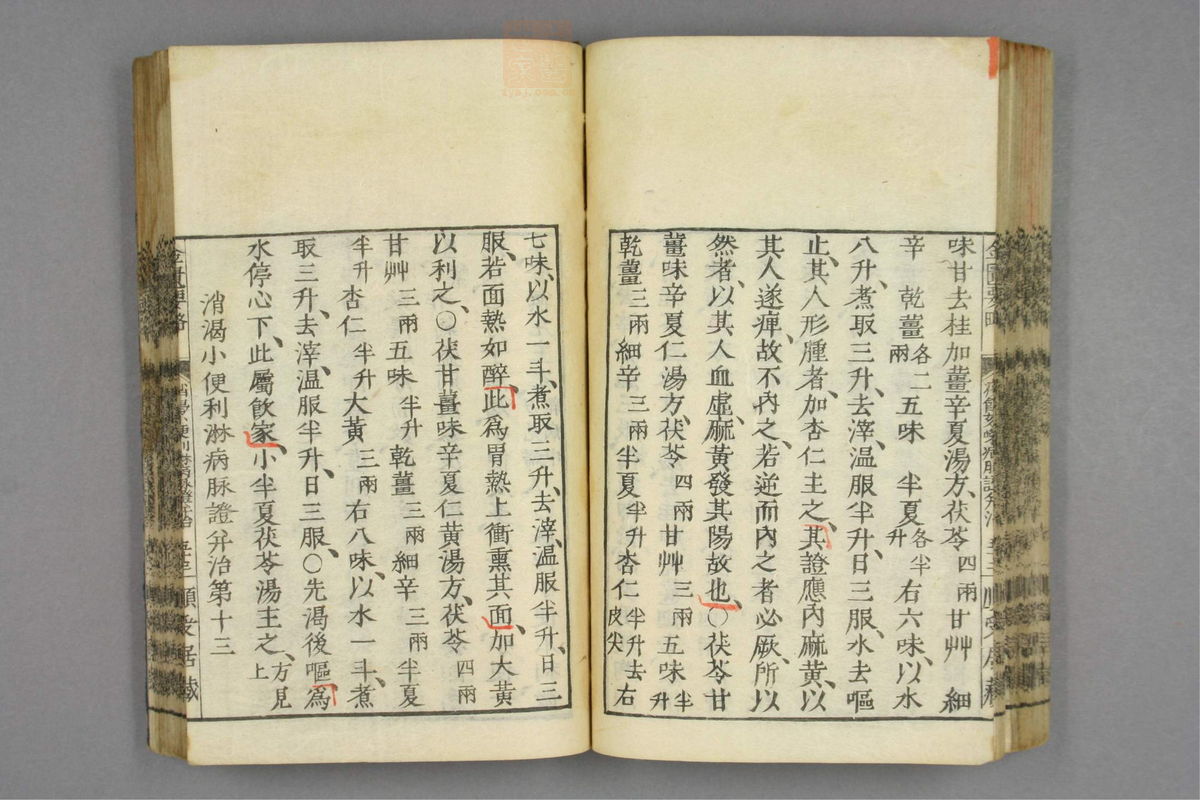 味甘去桂加薑辛夏湯方、茯苓四兩甘艸 細
辛 乾薑各二兩五味 半夏各半升右六味、以水
八升、煮取三升、去滓、温服半升、日三服、水去嘔
止、其人形腫者、加杏仁主之、其證應內麻黃、以
其人遂痺、故不內之、若逆而內之者必厥、所以
然者、以其人血虛、麻黃發其陽故也、○茯苓甘
薑味辛夏仁湯方、茯苓四兩甘艸三兩五味半升
乾薑三兩細辛三兩半夏半升杏仁半升去皮尖右
七味、以水一斗、煮取三升、去滓、温服半升、日三
服、若面熱如醉、此爲胃熱上衝熏其面、加大黃
以利之、○茯甘薑味辛夏仁黃湯方、茯苓四兩
甘艸三兩五味半升乾薑三兩細辛三兩半夏
半升杏仁半升大黃三兩右八味、以水一斗、煮
取三升、去滓、温服半升、日三服、○先渴後嘔、爲
水停心下、此屬飮家、小半夏茯苓湯主之、方見上
消渴小便利淋病脉證并治第十三
金匱要略
順受居藏